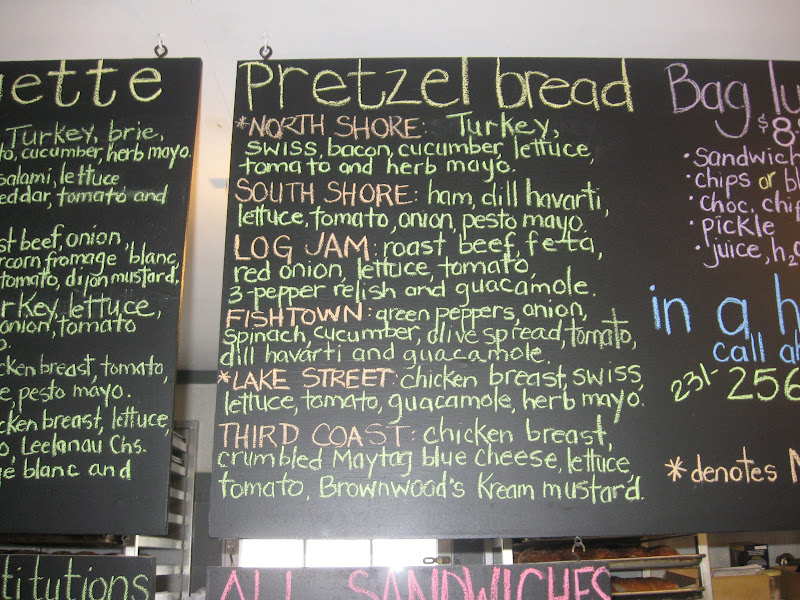 Turkey, brie,
cucumber, herb mayo.
salami, lettuce
tomato and
beef, onion,
fromage blanc,
tomato, dijon mustard.
lettuce,
onion, tomato
breast, tomato,
pesto mayo.
breast, lettuce,
Leelanau Chs.
blanc and
Pretzel bread
*NORTH SHORE: Turkey,
swiss, bacon, cucumber, lettuce,
tomato and herb mayo.
SOUTH SHORE: ham, dill havarti,
lettuce, tomato, onion, pesto mayo.
LOG JAM: roast beef, feta,
red onion, lettuce, tomato,
3-pepper relish and guacamole.
FISHTOWN: green peppers, onion,
spinach, cucumber, olive spread, tomato,
dill havarti and guacamole.
*LAKE STREET: chicken breast, swiss,
lettuce, tomato, guacamole, herb mayo.
THIRD COAST: chicken breast,
crumbled Maytag blue cheese, lettuce,
tomato, Brownwood's Kream mustard.
Bag
$8
• Sandwich
• chips or
• choc. chip
• pickle
• juice, h2o
in a
call
231-256
*denotes
ALL SANDWICHES